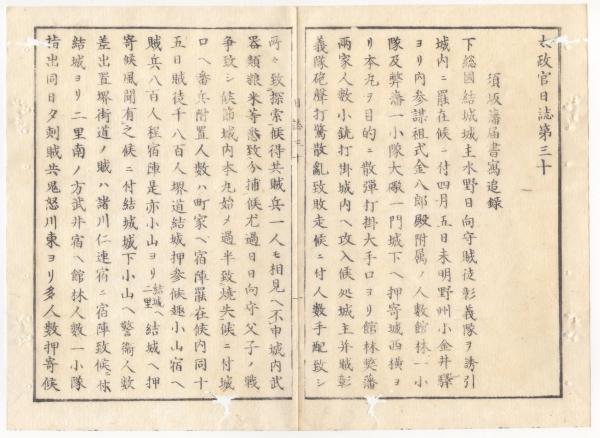 太政官日誌第三十
須坂藩届書寫追錄
下総國結城城主水野日向守賊徒彰義隊ヲ誘引
城内ニ罷在候ニ付四月五日未明野州小金井驛
ヨリ内参謀祖式金八郎殿附属ノ人數館林一小
隊及弊藩一小隊大礮一門城下ヘ押寄城西横ヨ
リ本丸ヲ目的ニ散彈打掛大手口ヨリ館林弊藩
兩家人數小銃打掛城内ヘ攻入候処城主并賊彰
義隊砲聲打驚散亂致敗走候ニ付人數手配致シ
日誌三十
所々致探索候得共賊兵一人モ相見ヘ不申城内武
器類粮米等悉致分捕候尤過日日向守父子ノ戰
争致シ候節城内本丸始メ過半致焼失候ニ付城
口ヘ番兵附置人數ハ町家ヘ宿陣罷在候内同十
五日賊徒千八百人堺道結城押参候趣小山宿ヘ
賊兵八百人程宿陣是亦小山ヨリ結城ヘ二里結城ヘ押
寄候風聞有之候ニ付結城城下小山ヘ警衞人數
差出置堺街道ノ賊ハ諸川仁連宿ニ宿陣致候
結城ヨリ二里南ノ方武井宿ヘ館林人數一小隊
指出同日夕刻賊共鬼怒川東ヨリ多人數押寄候